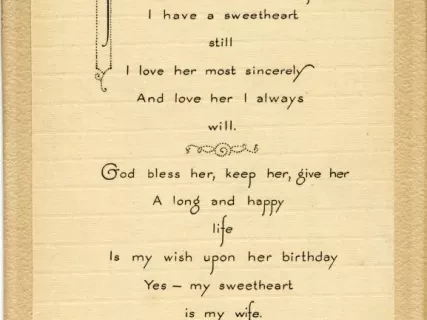 I have a sweetheart
still
I love her most sincerely
And love her I always
will.
God bless her, keep her, give her
A long and happy
life
Is my wish upon her birthday
Yes – my sweetheart
is my wife.